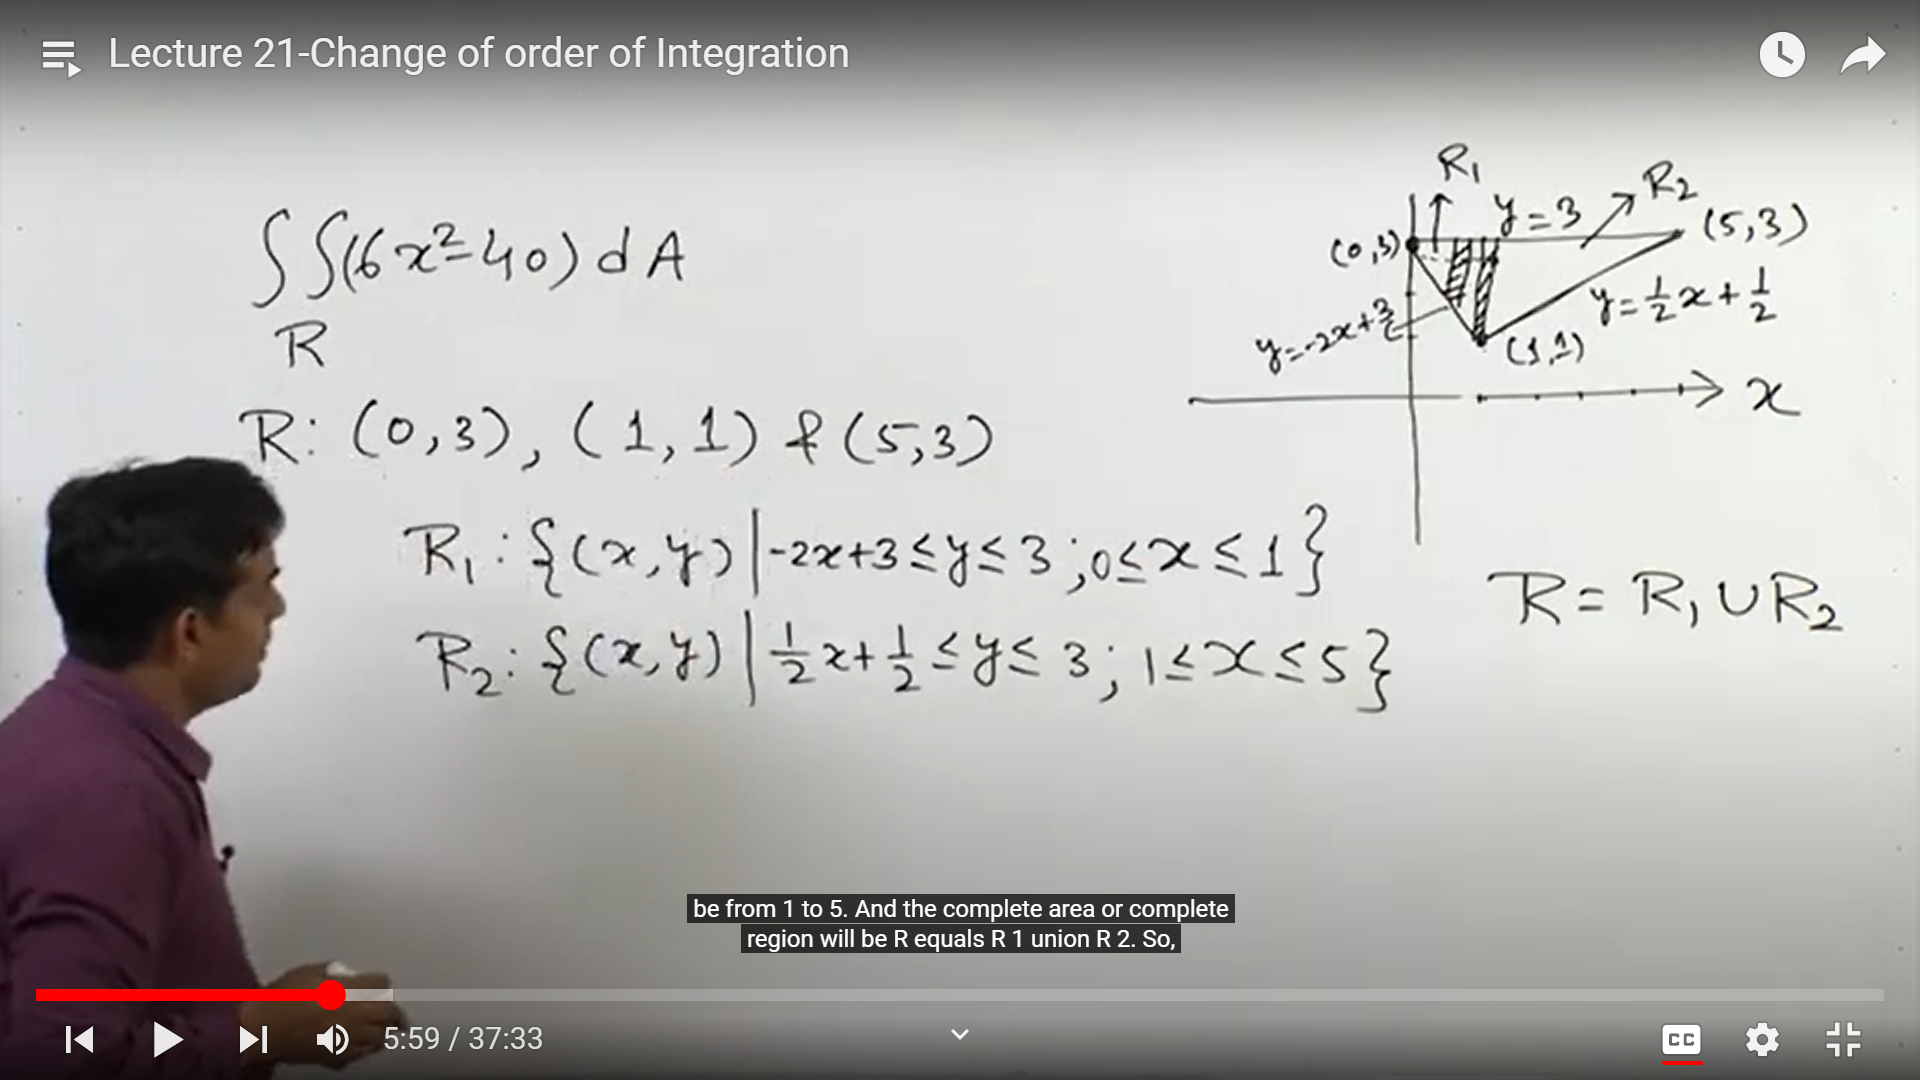 Lecture 21-Change of order of Integration
∫∫(6x²-40) dA
R
R: (0,3), (1,1) & (5,3)
R₁: {(x,y) | -2x+3 ≤ y ≤ 3; 0 ≤ x ≤ 1}
R₂: {(x,y) | 1/2 x + 1/2 ≤ y ≤ 3; 1 ≤ x ≤ 5}
R₁
R₂
y=3
(5,3)
(0,3)
y=1/2 x + 1/2
y=-2x+3
(1,1)
x
R = R₁ ∪ R₂
be from 1 to 5. And the complete area or complete
region will be R equals R 1 union R 2. So,
5:59 / 37:33
CC